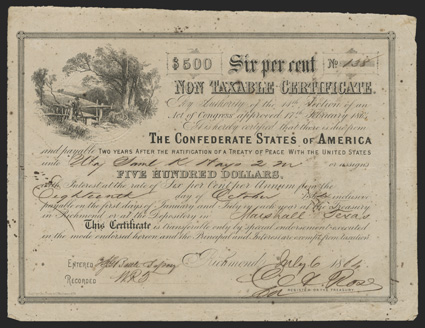 $500 Six per cent No 138
NON TAXABLE CERTIFICATE.
By Authority of the 18th Section of an
Act of Congress approved 17th February 1864
It is hereby certified that there is due from
THE CONFEDERATE STATES OF AMERICA
and payable TWO YEARS AFTER THE RATIFICATION OF A TREATY OF PEACE WITH THE UNITED STATES
unto Maj Saml K Hays 2 M or assigns
FIVE HUNDRED DOLLARS,
with Interest at the rate of Six per Cent per Annum from the
Eighteenth day of October inclusive
payable on the first day of January and July in each year at the Treasury
in Richmond or at the Depository in Marshall Texas
This Certificate is transferable only by special endorsement executed
in the mode endorsed hereon and the Principal and Interest is exempt from taxation
Richmond July 6 1864
ENTERED
RECORDED
REGISTER OF THE TREASURY